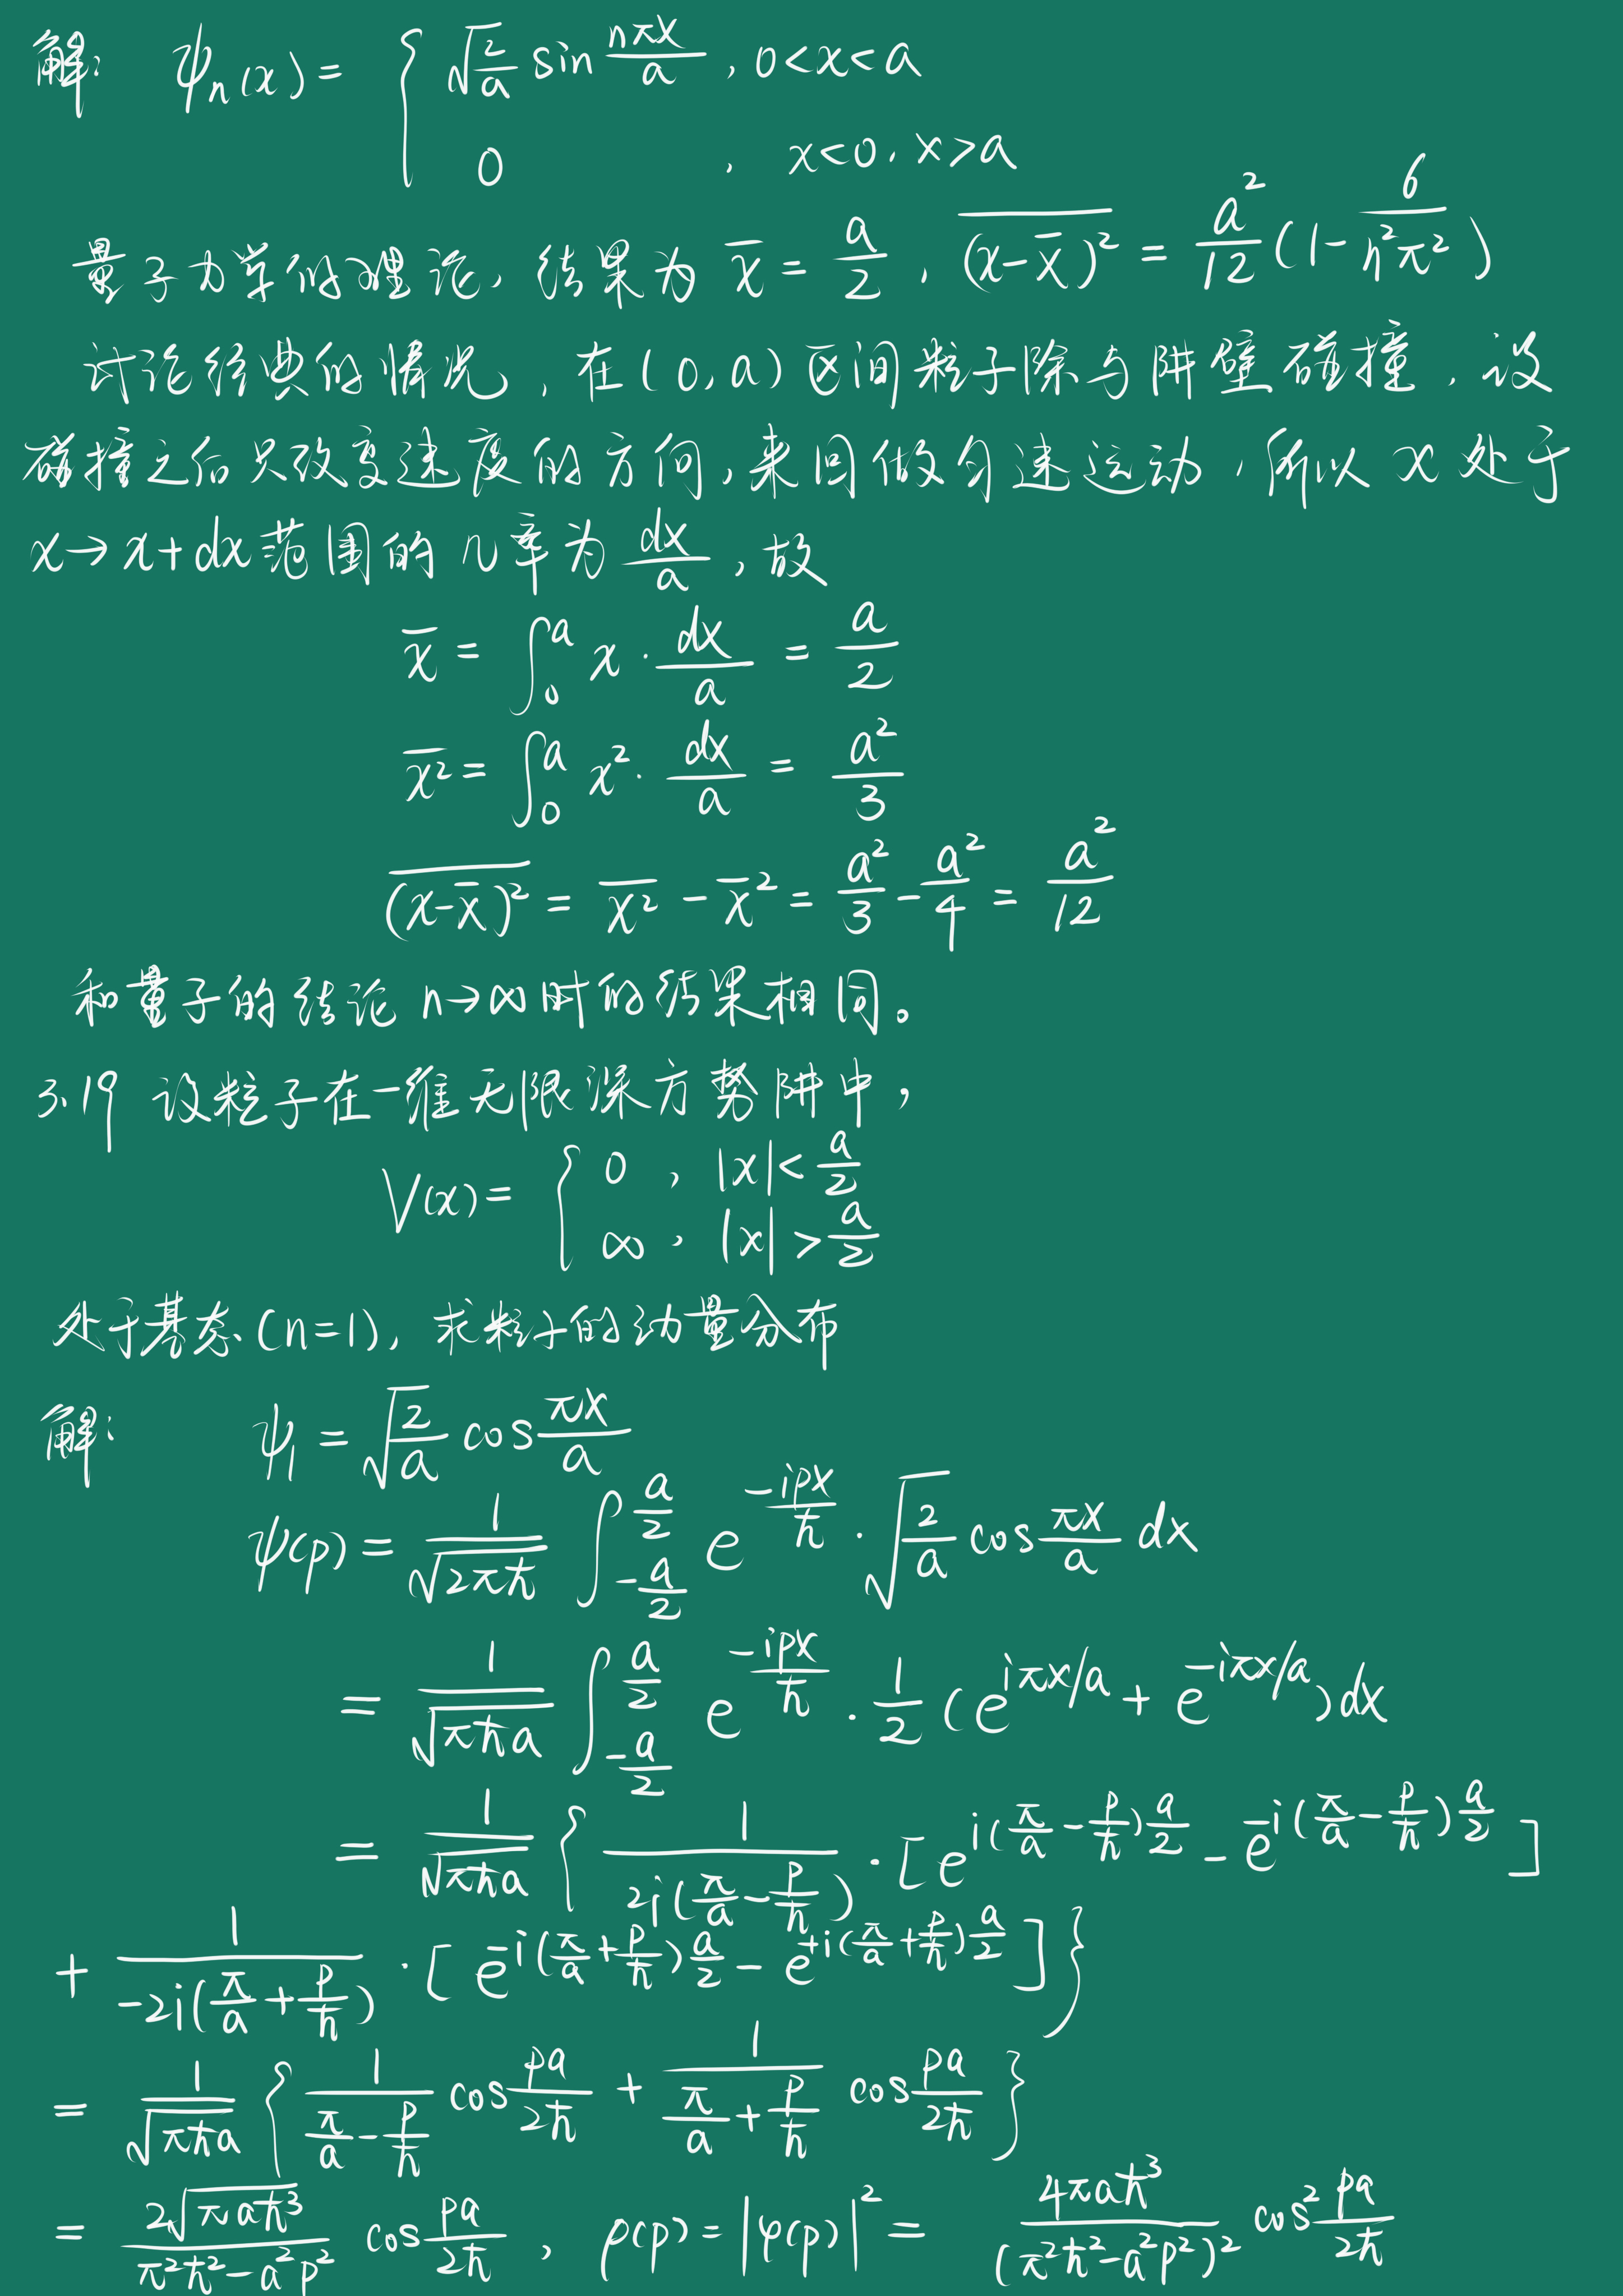 解: ψₙ(x) = { √(2/a) sin(nπx/a), 0<x<a
0, x<0, x>a
量子力学的理论, 结果为 x̄ = a/2, \overline{(x-x̄)²} = a²/12 (1 - 6/(n²π²))
讨论经典的情况, 在(0,a)区间粒子除与阱壁碰撞, 设
碰撞之后只改变速度的方向, 来回做匀速运动, 所以 x 处于
x→x+dx范围的几率为 dx/a, 故
x̄ = ∫₀ᵃ x·dx/a = a/2
\overline{x²} = ∫₀ᵃ x²·dx/a = a²/3
\overline{(x-x̄)²} = \overline{x²} - x̄² = a²/3 - a²/4 = a²/12
和量子的结论 n→∞时的结果相同。
3.19 设粒子在一维无限深方势阱中,
V(x) = { 0, |x|<a/2
∞, |x|>a/2
处于基态(n=1), 求粒子的动量分布
解: ψ₁ = √(2/a) cos(πx/a)
ψ(p) = 1/√(2πħ) ∫_{-a/2}^{a/2} e^{-ipx/ħ}·√(2/a) cos(πx/a) dx
= 1/√(πħa) ∫_{-a/2}^{a/2} e^{-ipx/ħ}·1/2 (e^{iπx/a} + e^{-iπx/a})dx
= 1/√(πħa) { 1/(2i(π/a - p/ħ))·[e^{i(π/a - p/ħ)a/2} - e^{-i(π/a - p/ħ)a/2}]
+ 1/(-2i(π/a + p/ħ))·[e^{-i(π/a + p/ħ)a/2} - e^{+i(π/a + p/ħ)a/2}]}
= 1/√(πħa) { 1/(π/a - p/ħ) cos(pa/2ħ) + 1/(π/a + p/ħ) cos(pa/2ħ) }
= 2√(πaħ³)/(π²ħ²-a²p²) cos(pa/2ħ), ρ(p) = |φ(p)|² = 4πaħ³/(π²ħ²-a²p²)² cos²(pa/2ħ)